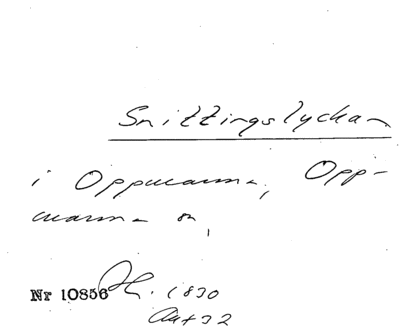 Snittingslyckan
i Oppmanna, Opp-
manna sn,
Nr 10856 Hl. 1830
Akt 32